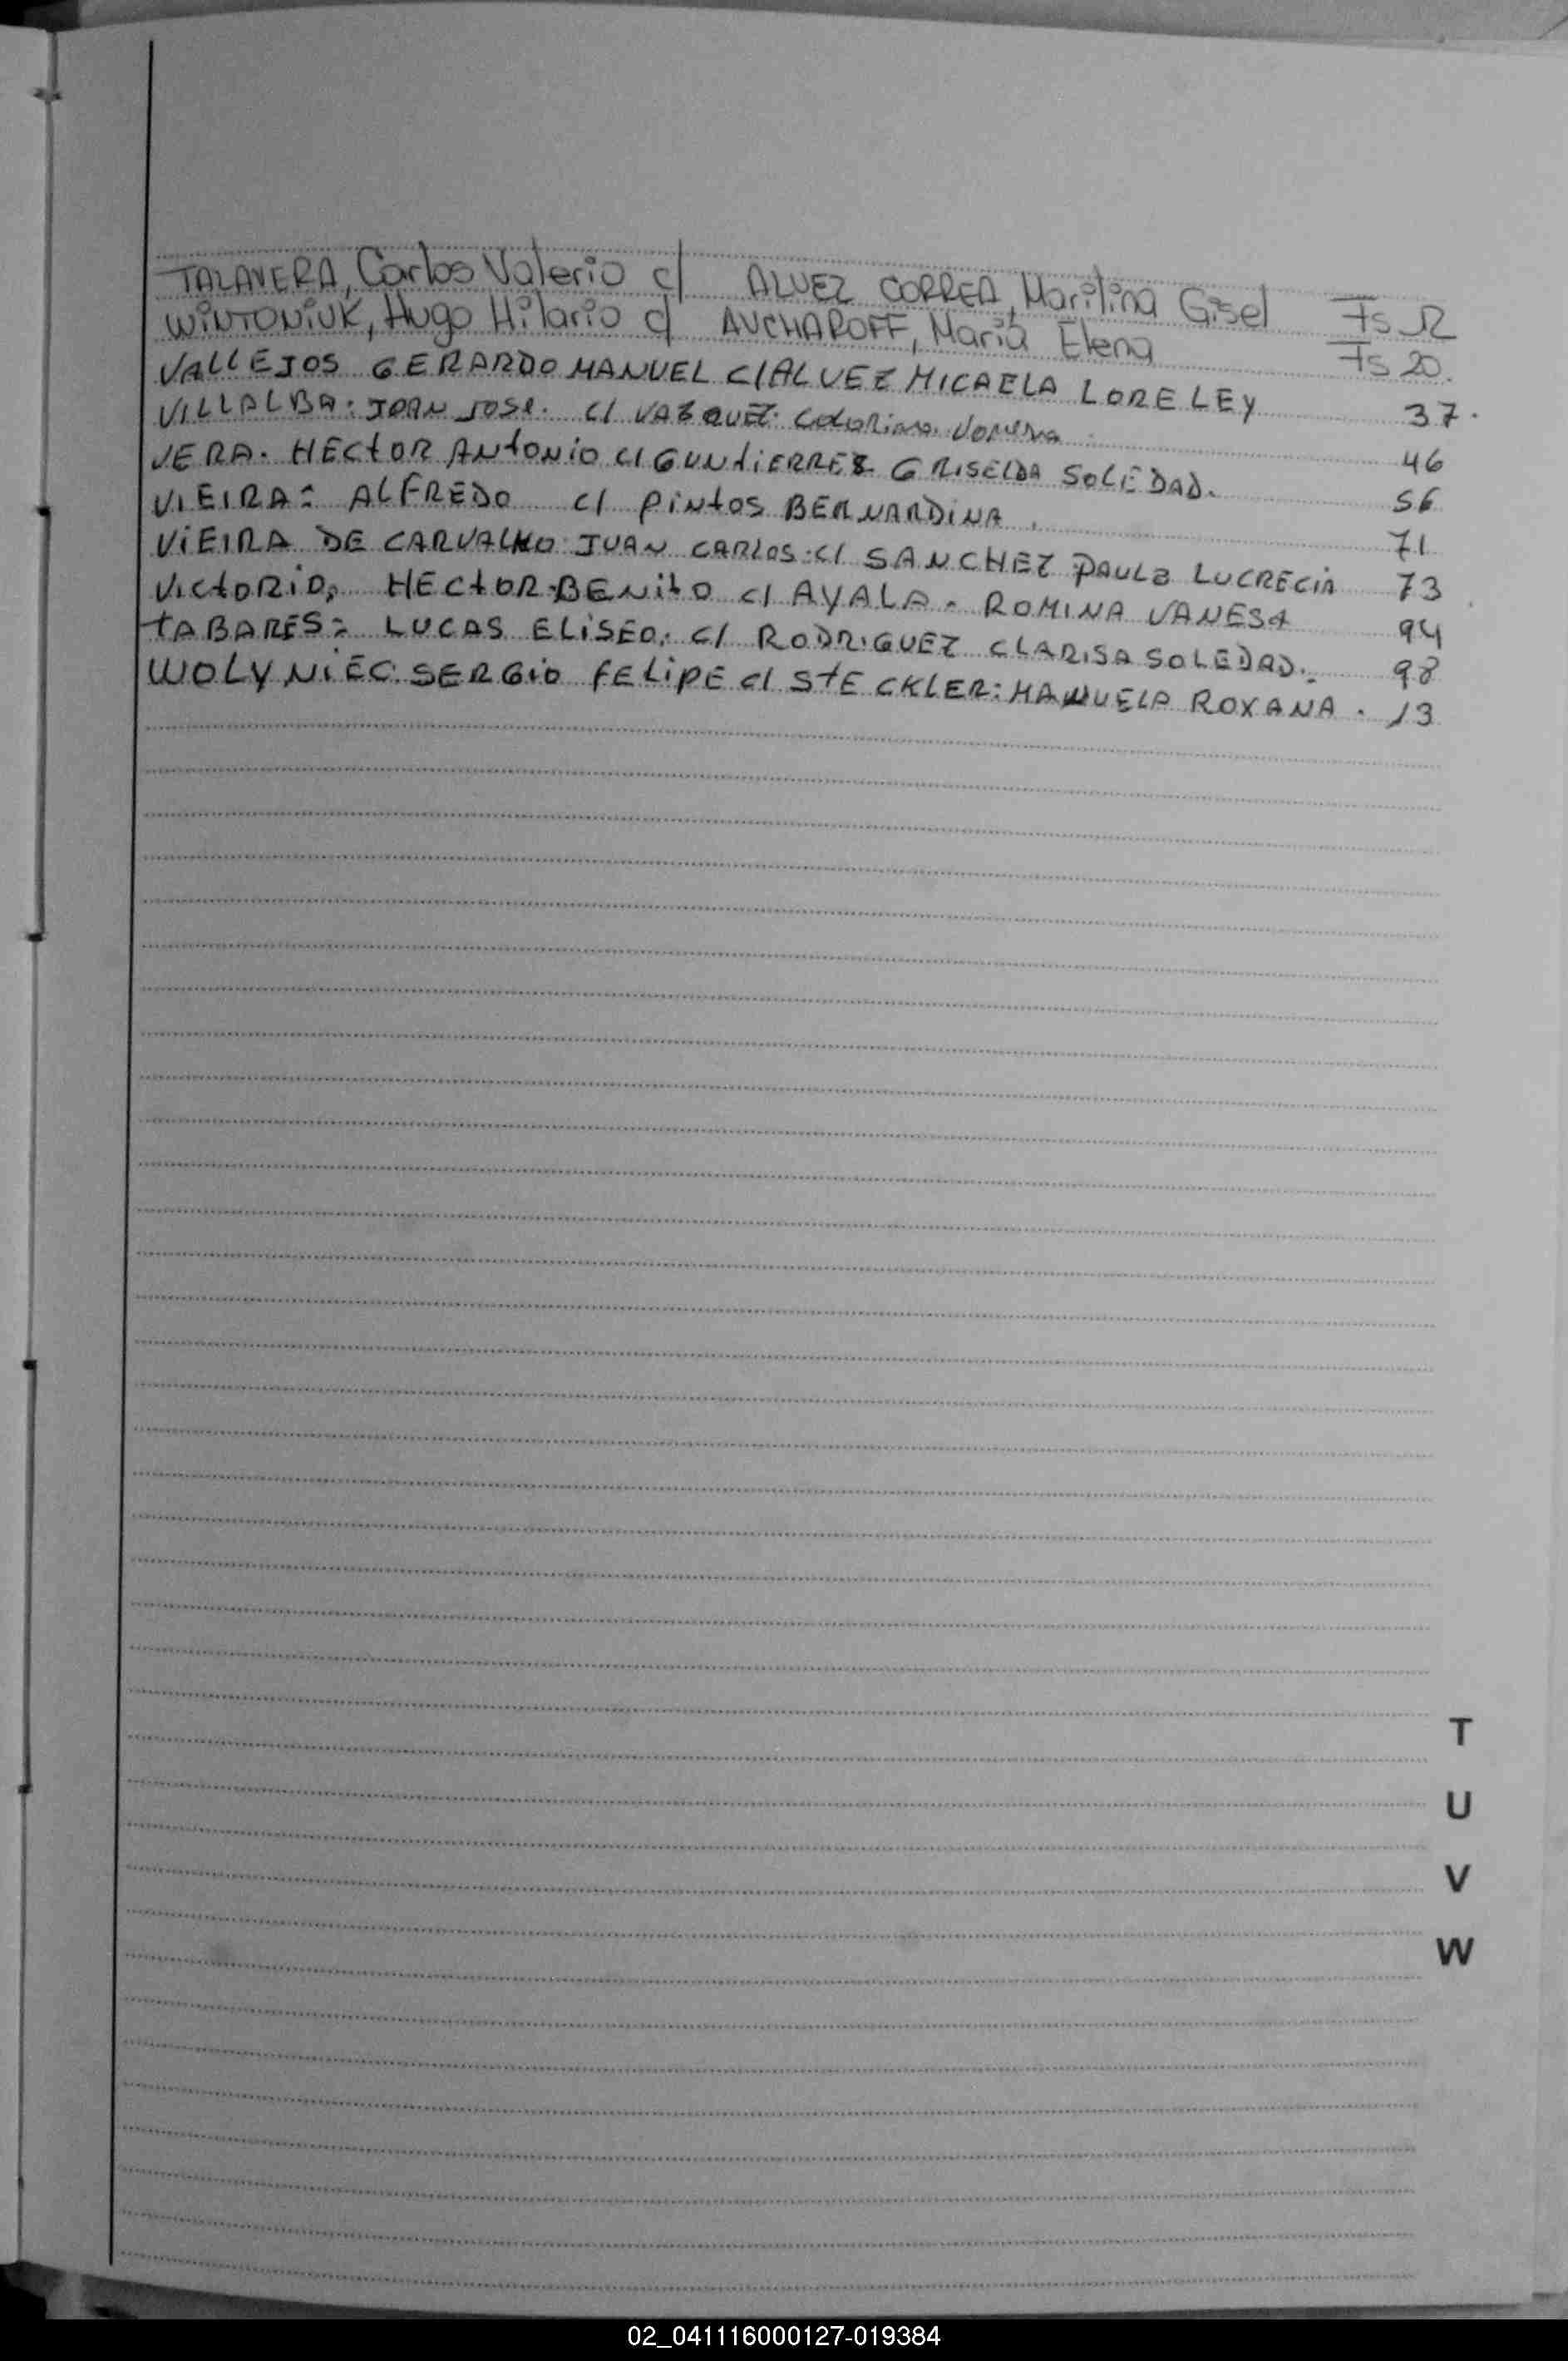 TALAVERA, Carlos Valerio c/ ALVEZ CORREA, Marilina Gisel Fs 12
WiNTONiUK, Hugo Hilario c/ AUCHAROFF, María Elena Fs 20.
VALLEJOS GERARDO MANUEL C/ ALVEZ MICAELA LORELEY 37.
VILLALBA: JOAN JOSE. C/ VAZQUEZ. 46
VERA. HECtOR ANtONiO C/ GUNtiERREZ GRISELDA SOLEDAD. 56
VIEIRA: ALFREDO C/ PiNtOS BERNARDiNA. 71
ViEIRA DE CARVALHO JUAN CARLOS: C/ SANCHEZ PAULA LUCRECIA 73
VICtORiO, HECtOR BENitO C/ AYALA. ROMINA VANESA 94
tABARES: LUCAS ELiSEO. C/ RODRIGUEZ CLARISA SOLEDAD. 98
WOLYNiEC. SERGiO FELiPE C/ StECKLER: MANUELA ROXANA. 13
T
U
V
W
02_041116000127-019384